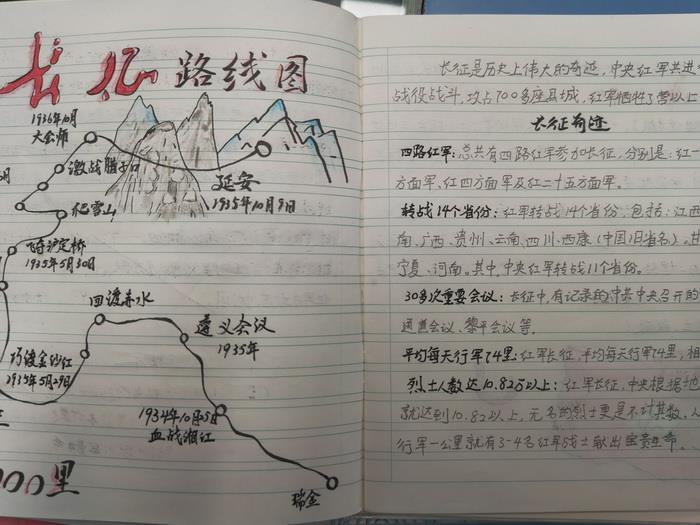 长征路线图
1936年10月
大会师
激战腊子口
月
爬雪山
延安
1935年10月9日
飞夺泸定桥
1935年5月30日
四渡赤水
遵义会议
1935年
巧渡金沙江
1935年5月29日
1934年10月5日
血战湘江
000里
瑞金
长征是历史上伟大的奇迹,中央红军共进
战役战斗,攻占700多座县城,红军牺牲了营以上
长征奇迹
四路红军:总共有四路红军参加长征,分别是:红一
方面军,红四方面军及红二十五方面军。
转战14个省份:红军转战14个省份,包括:江西
南、广西、贵州、云南、四川、西康(中国旧省名)。甘
宁夏、河南。其中,中央红军转战11个省份。
30多次重要会议:长征中,有记录的中共中央召开的
通道会议、黎平会议等。
平均每天行军74里:红军长征,平均每天行军74里,相
烈士人数达10.82万以上:红军长征,中央根据地
就达到10.82以上,无名的烈士更是不计其数。
行军一公里就有3-4名红军战士献出宝贵生命。